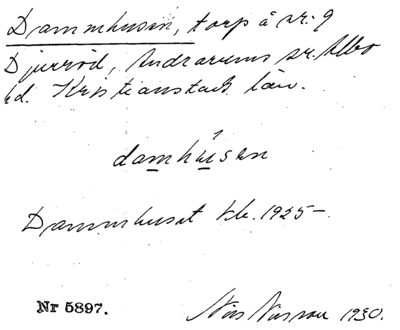 Dammhusen, torp å nr. 9
Djurröd, Andrarums sn. Albo
hd. Kristianstads län.
damhúsen
Dammhuset kb. 1925–.
Nr 5897.
Nils Nilsson 1930.